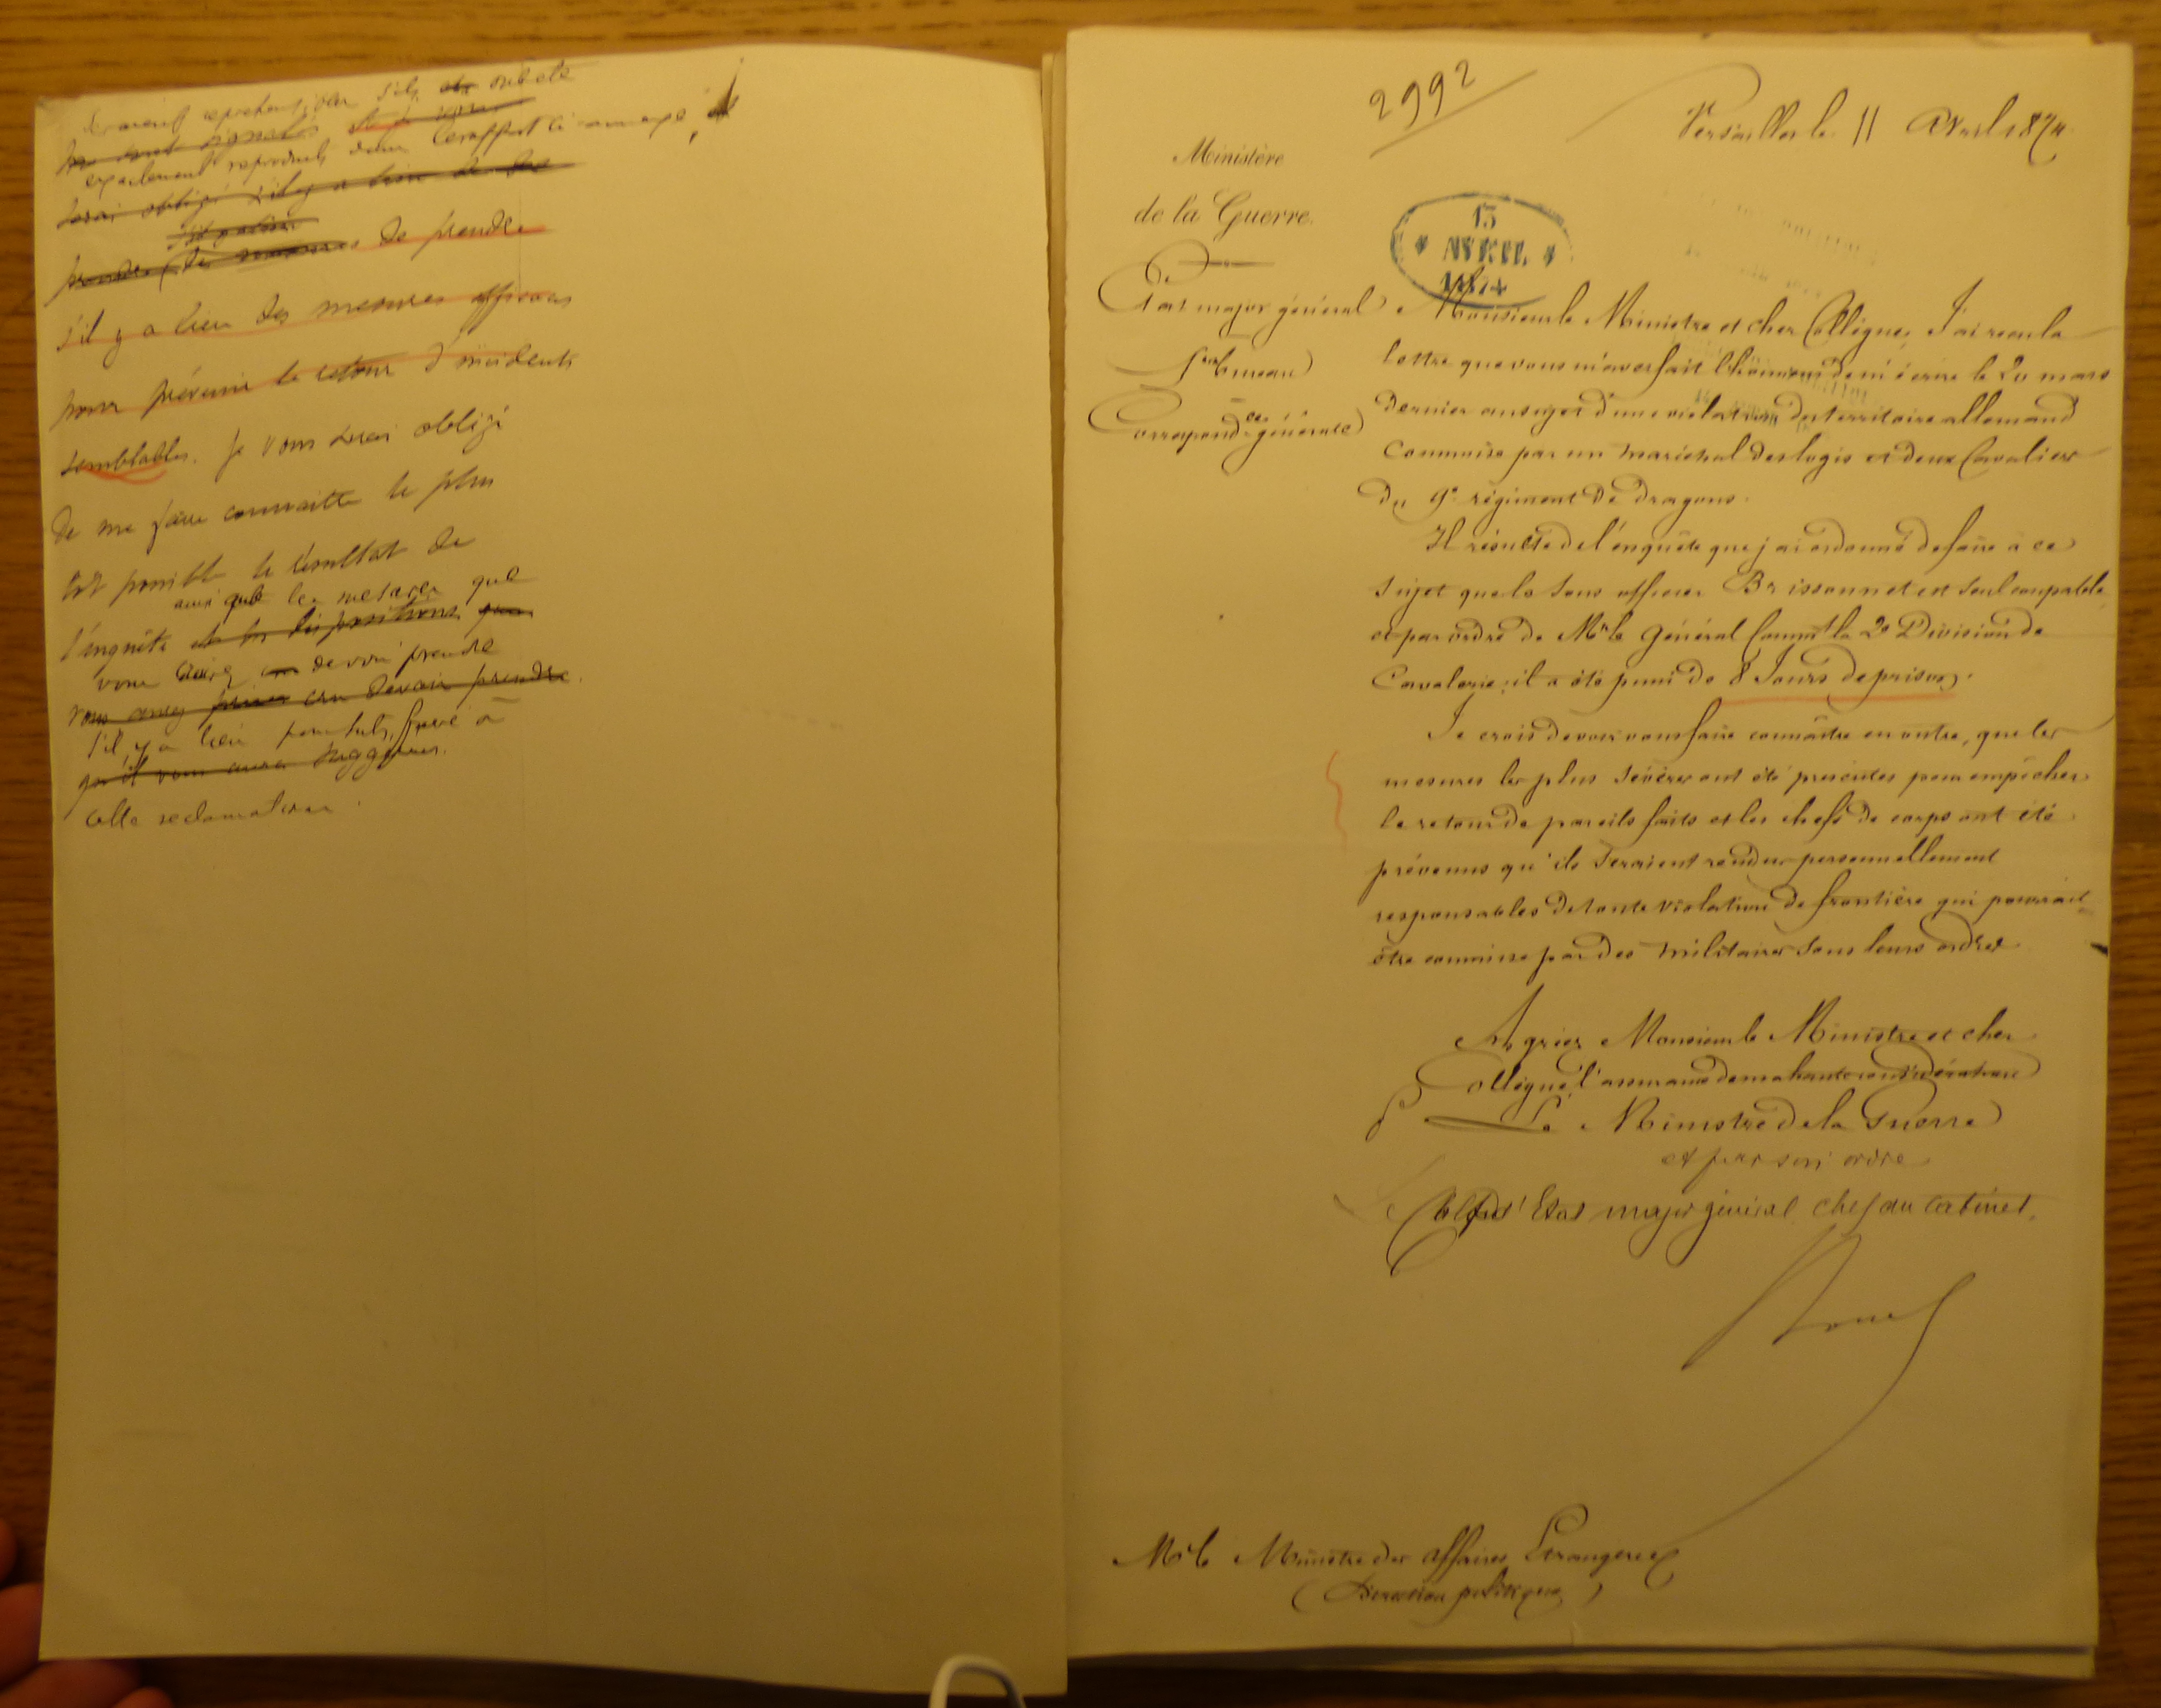 seraient repréhensibles s'ils ont été
exactement reproduits dans
serai obligé s'il y a lieu de
prendre des mesures de prendre
s'il y a lieu des mesures efficaces
pour prévenir le retour d'incidents
semblables. Je vous serai obligé
de me faire connaitre le plus
tôt possible le résultat de
ainsi que les mesures que
l'enquête et les dispositions que
vous devoir prendre
vous avez cru devoir prendre.
s'il y a lieu pour satisfaire à
qu'il vous aura suggérées.
cette réclamation.
2992
Versailles le 11 Avril 1874
Ministère
de la Guerre.
13
AVRIL
1874
Etat major général
1er bureau
Correspondce générale
Monsieur le Ministre et cher Collègue, J'ai reçu la
lettre que vous m'avez fait l'honneur de m'écrire le 20 mars
dernier au sujet d'une violation du territoire allemand
commise par un maréchal des logis et deux Cavaliers
du 9e régiment de dragons.
Il résulte de l'enquête que j'ai ordonné de faire à ce
sujet que le sous officier Brissonnet est seul coupable
et par ordre de Mr le Général Commt la 2e Division de
Cavalerie, il a été puni de 8 Jours de prison.
Je crois devoir vous faire connaître en outre, que les
mesures les plus sévères ont été prescrites pour empêcher
le retour de pareils faits et les chefs de corps ont été
prévenus qu'ils seraient rendus personnellement
responsables de toute violation de frontière qui pourrait
être commise par des militaires sous leurs ordres
Agréez Monsieur le Ministre et cher
Collègue l'assurance de ma haute considération
Le Ministre de la Guerre
et par son ordre
Le Col d'Etat major général chef du cabinet.
Mr le Ministre des affaires Etrangères
(Direction politique)